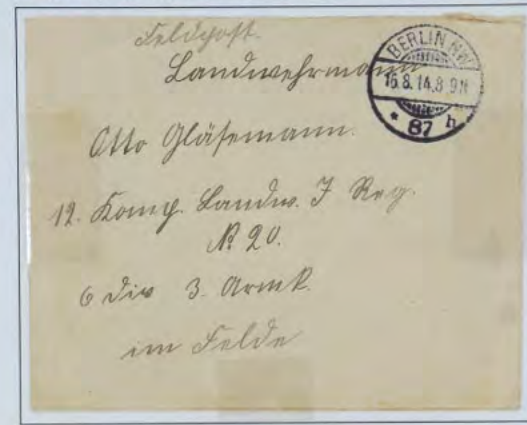 Feldpost.
Landwehrmann
BERLIN NW
16.8.14.8-9N
* 87 h
Otto Gläsemann.
12. Komp. Landw. I Reg.
№ 20.
6 Div 3. Armk.
im Felde